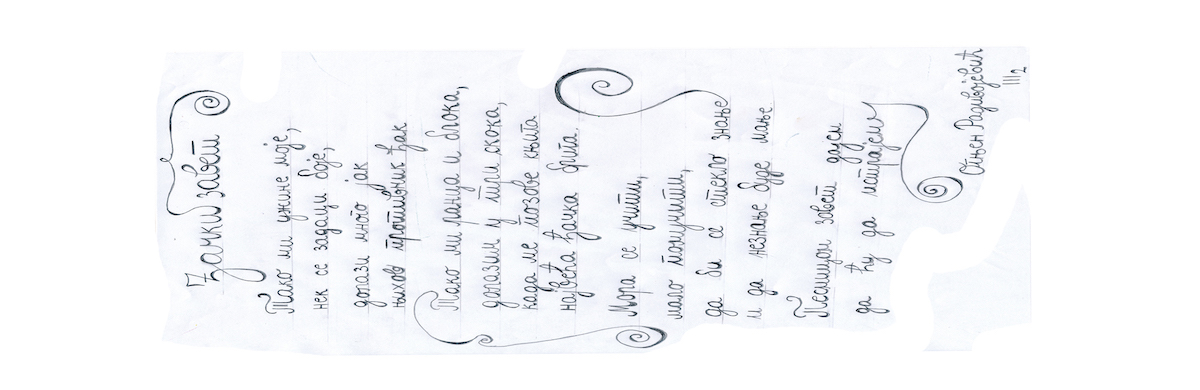 Ђачки завет
Тако ми ужине моје,
нек се задаци боје,
долази много јак
њихов противник ђак
Тако ми ранца и блока,
долазим у три скока,
када ме позове књига
највећа ђачка брига.
Мора се учити,
мало помучити,
да би се стекло знање
и да незнање буде мање
Песмицом завет дајем
да ћу да истрајем
Огњен Радивојевић
III2